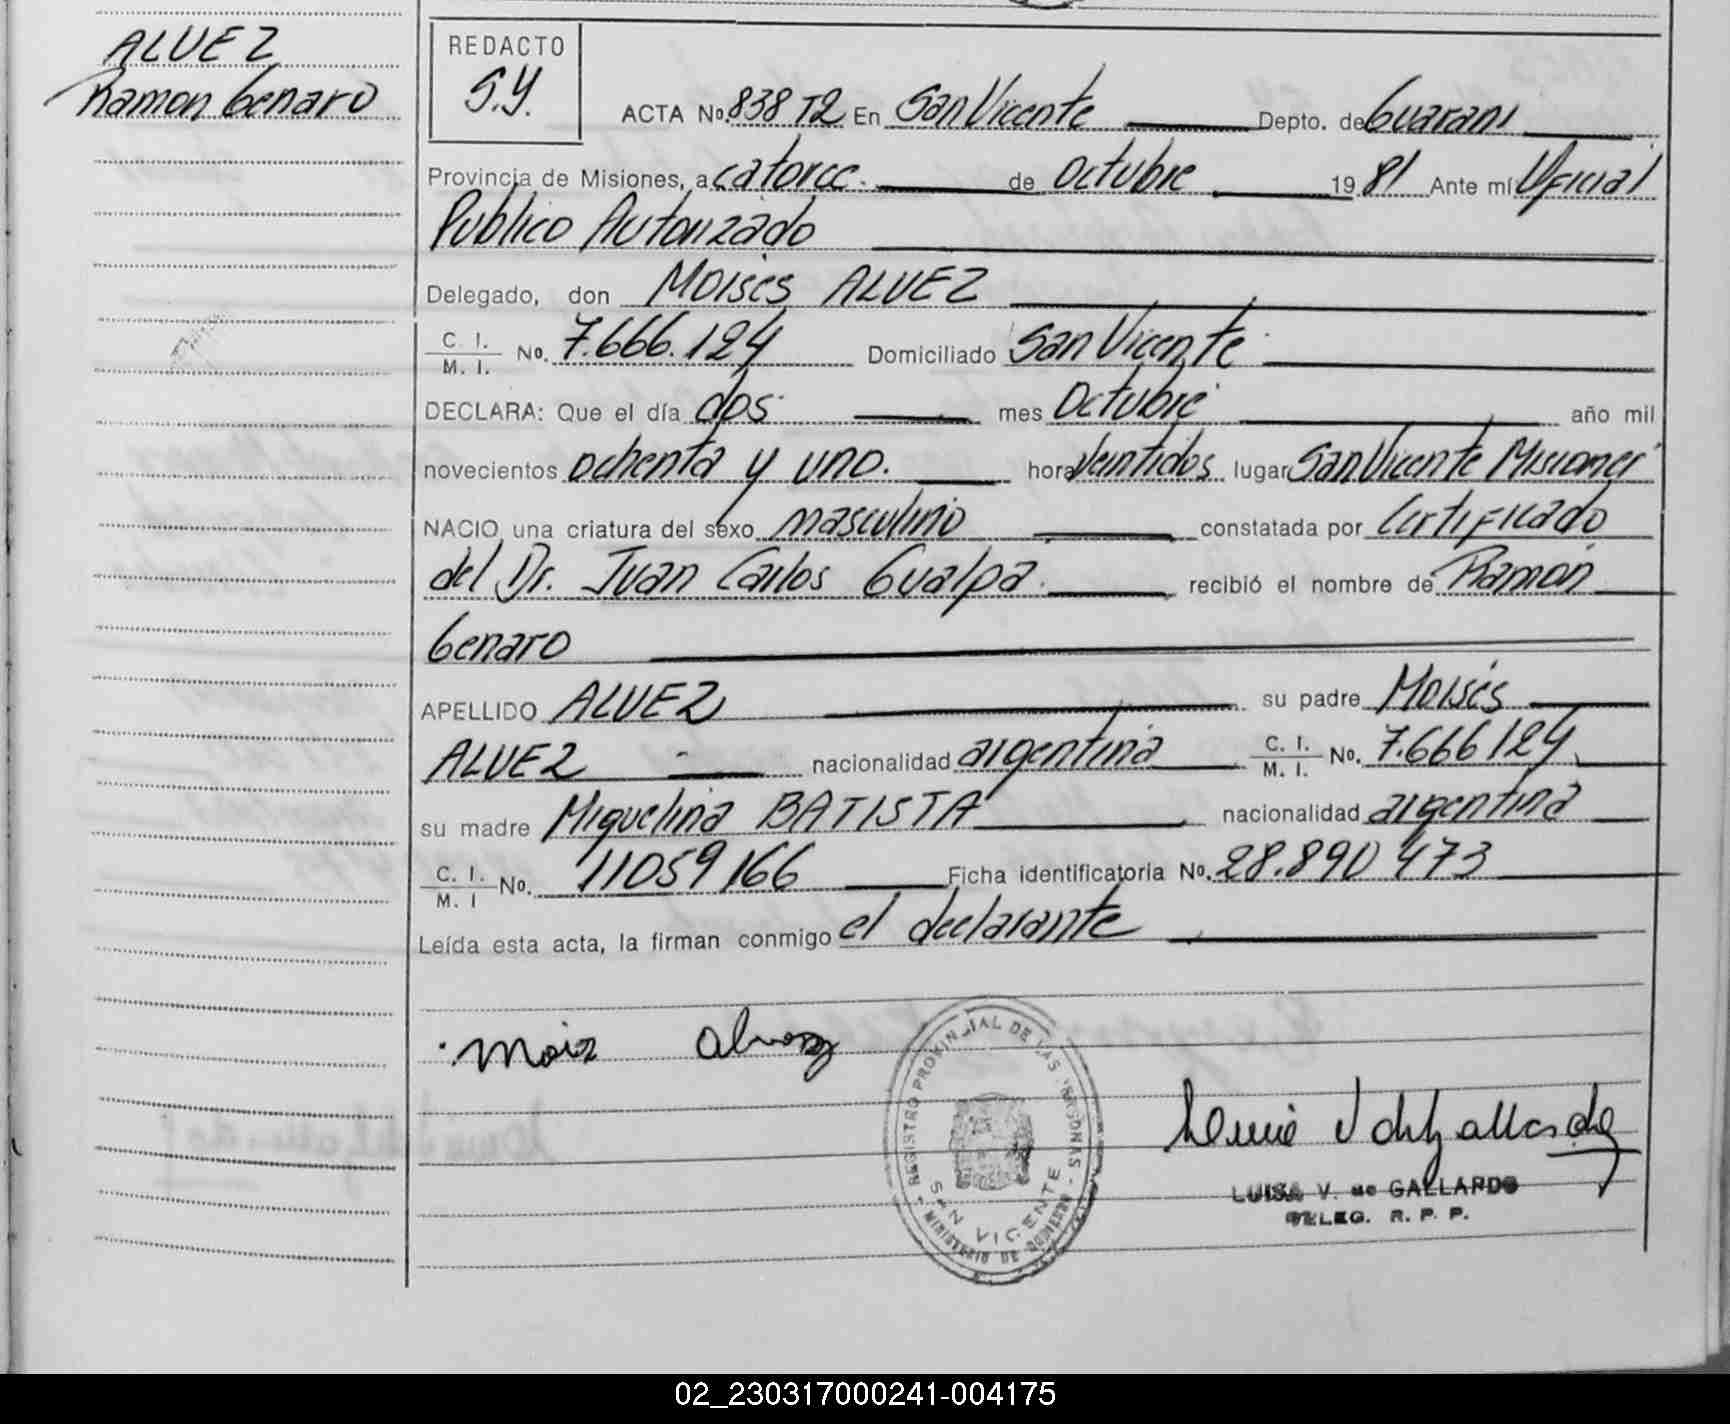 ALVEZ
Ramon Genaro
REDACTO
S.Y.
ACTA No. 838 T2 En San Vicente Depto. de Guarani
Provincia de Misiones, a catorce. de Octubre 1981 Ante mí Oficial
Publico Autorizado
Delegado, don Moisés ALVEZ
C. I.
M. I. No. 7.666.124 Domiciliado San Vicente
DECLARA: Que el día dos mes Octubre año mil
novecientos ochenta y uno. hora veintidos lugar San Vicente Misiones
NACIO una criatura del sexo masculino constatada por Certificado
del Dr. Juan Carlos Gualpa. recibió el nombre de Ramón
Genaro
APELLIDO ALVEZ su padre Moisés
ALVEZ nacionalidad argentina C. I. M. I. No. 7.666124
su madre Miguelina BATISTA nacionalidad argentina
C. I. M. I No. 11059166 Ficha identificatoria No. 28.890473
Leída esta acta, la firman conmigo el declarante
REGISTRO PROVINCIAL DE LAS PERSONAS - MINISTERIO DE GOBIERNO
SAN VICENTE
LUISA V. de GALLARDO
DELEG. R. P. P.
02_230317000241-004175